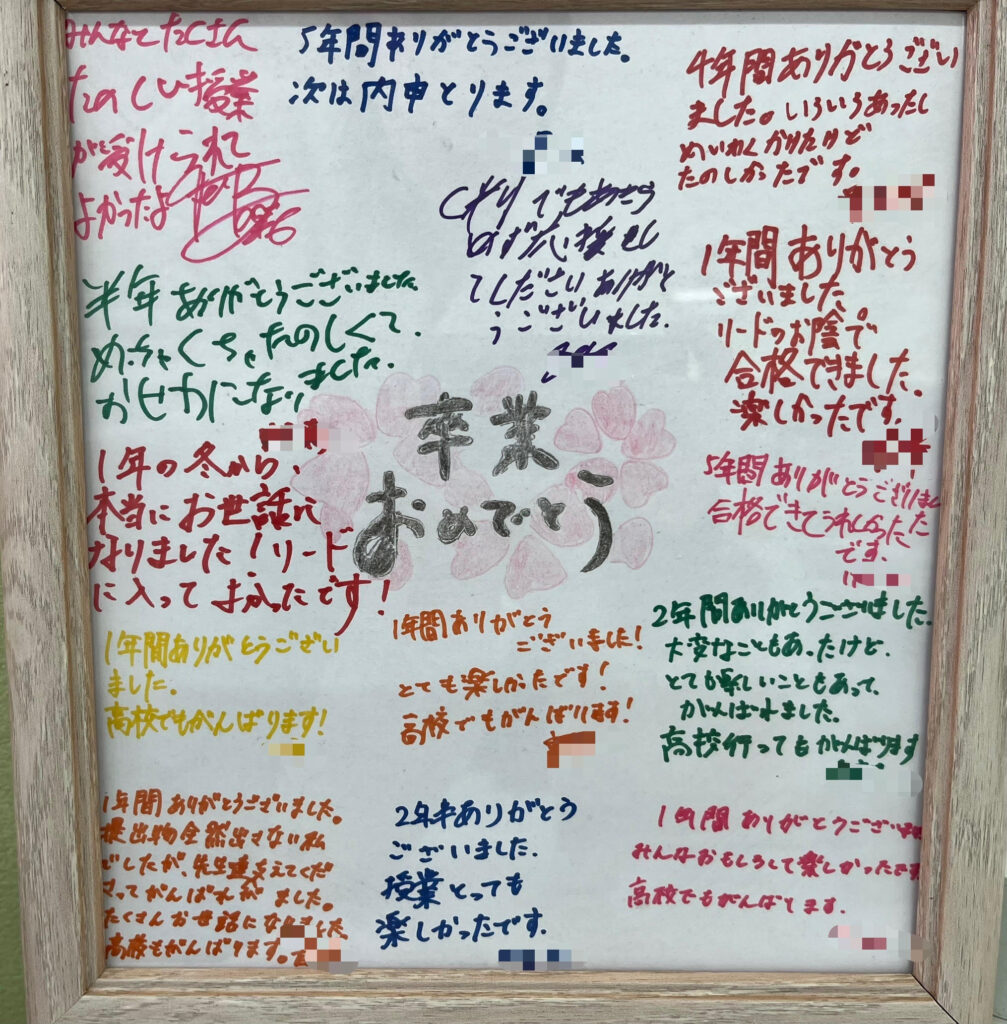 みんなでたくさん
たのしい授業
が受けられて
よかったよ
5年間ありがとうございました。
次は内申とります。
4年間ありがとうござい
ました。いろいろあったし
めいわくかけたけど
たのしかったです。
てくださいありがと
うございました。
1年間ありがとう
ございました。
リードのお陰で
合格できました。
楽しかったです。
半年ありがとうございました。
めちゃくちゃたのしくて、
おせわになりました。
卒業
おめでとう
1年の冬から、
本当にお世話に
なりました!リード
に入ってよかったです!
5年間ありがとうございました
合格できてうれしかった
です。
1年間ありがとうござい
ました。
高校でもがんばります!
1年間ありがとう
ございました!
とても楽しかったです!
高校でもがんばります!
2年間ありがとうございました。
大変なこともあったけど、
とても楽しいこともあって、
がんばれました。
高校行ってもがんばります
1年間ありがとうございました。
提出物全然出さない私
でしたが、先生方支えてくだ
さってがんばれました。
たくさんお世話になりました
高校もがんばります。
2年半ありがとう
ございました。
授業とっても
楽しかったです。
1年間ありがとうございました
みんなおもしろくて楽しかったです
高校でもがんばります。